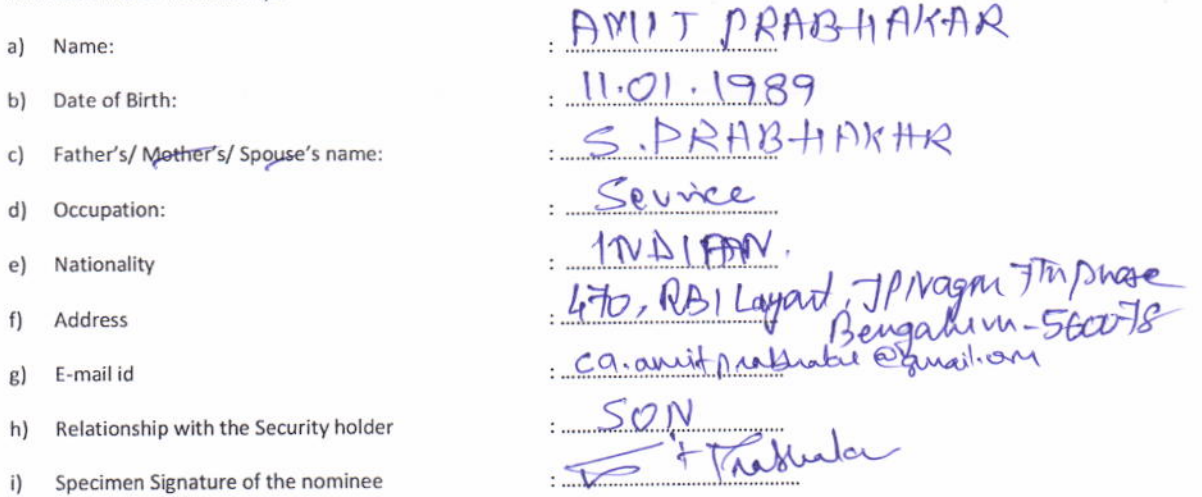 a) Name: : AMIT PRABHAKAR
b) Date of Birth: : 11.01.1989
c) Father's/ Mother's/ Spouse's name: : S.PRABHAKAR
d) Occupation: : Service
e) Nationality : INDIAN.
f) Address : 470, RBI Layout, JP Nagar 7th phase
Bengaluru-560078
g) E-mail id : ca.amitprabhakar@gmail.com
h) Relationship with the Security holder : SON
i) Specimen Signature of the nominee :